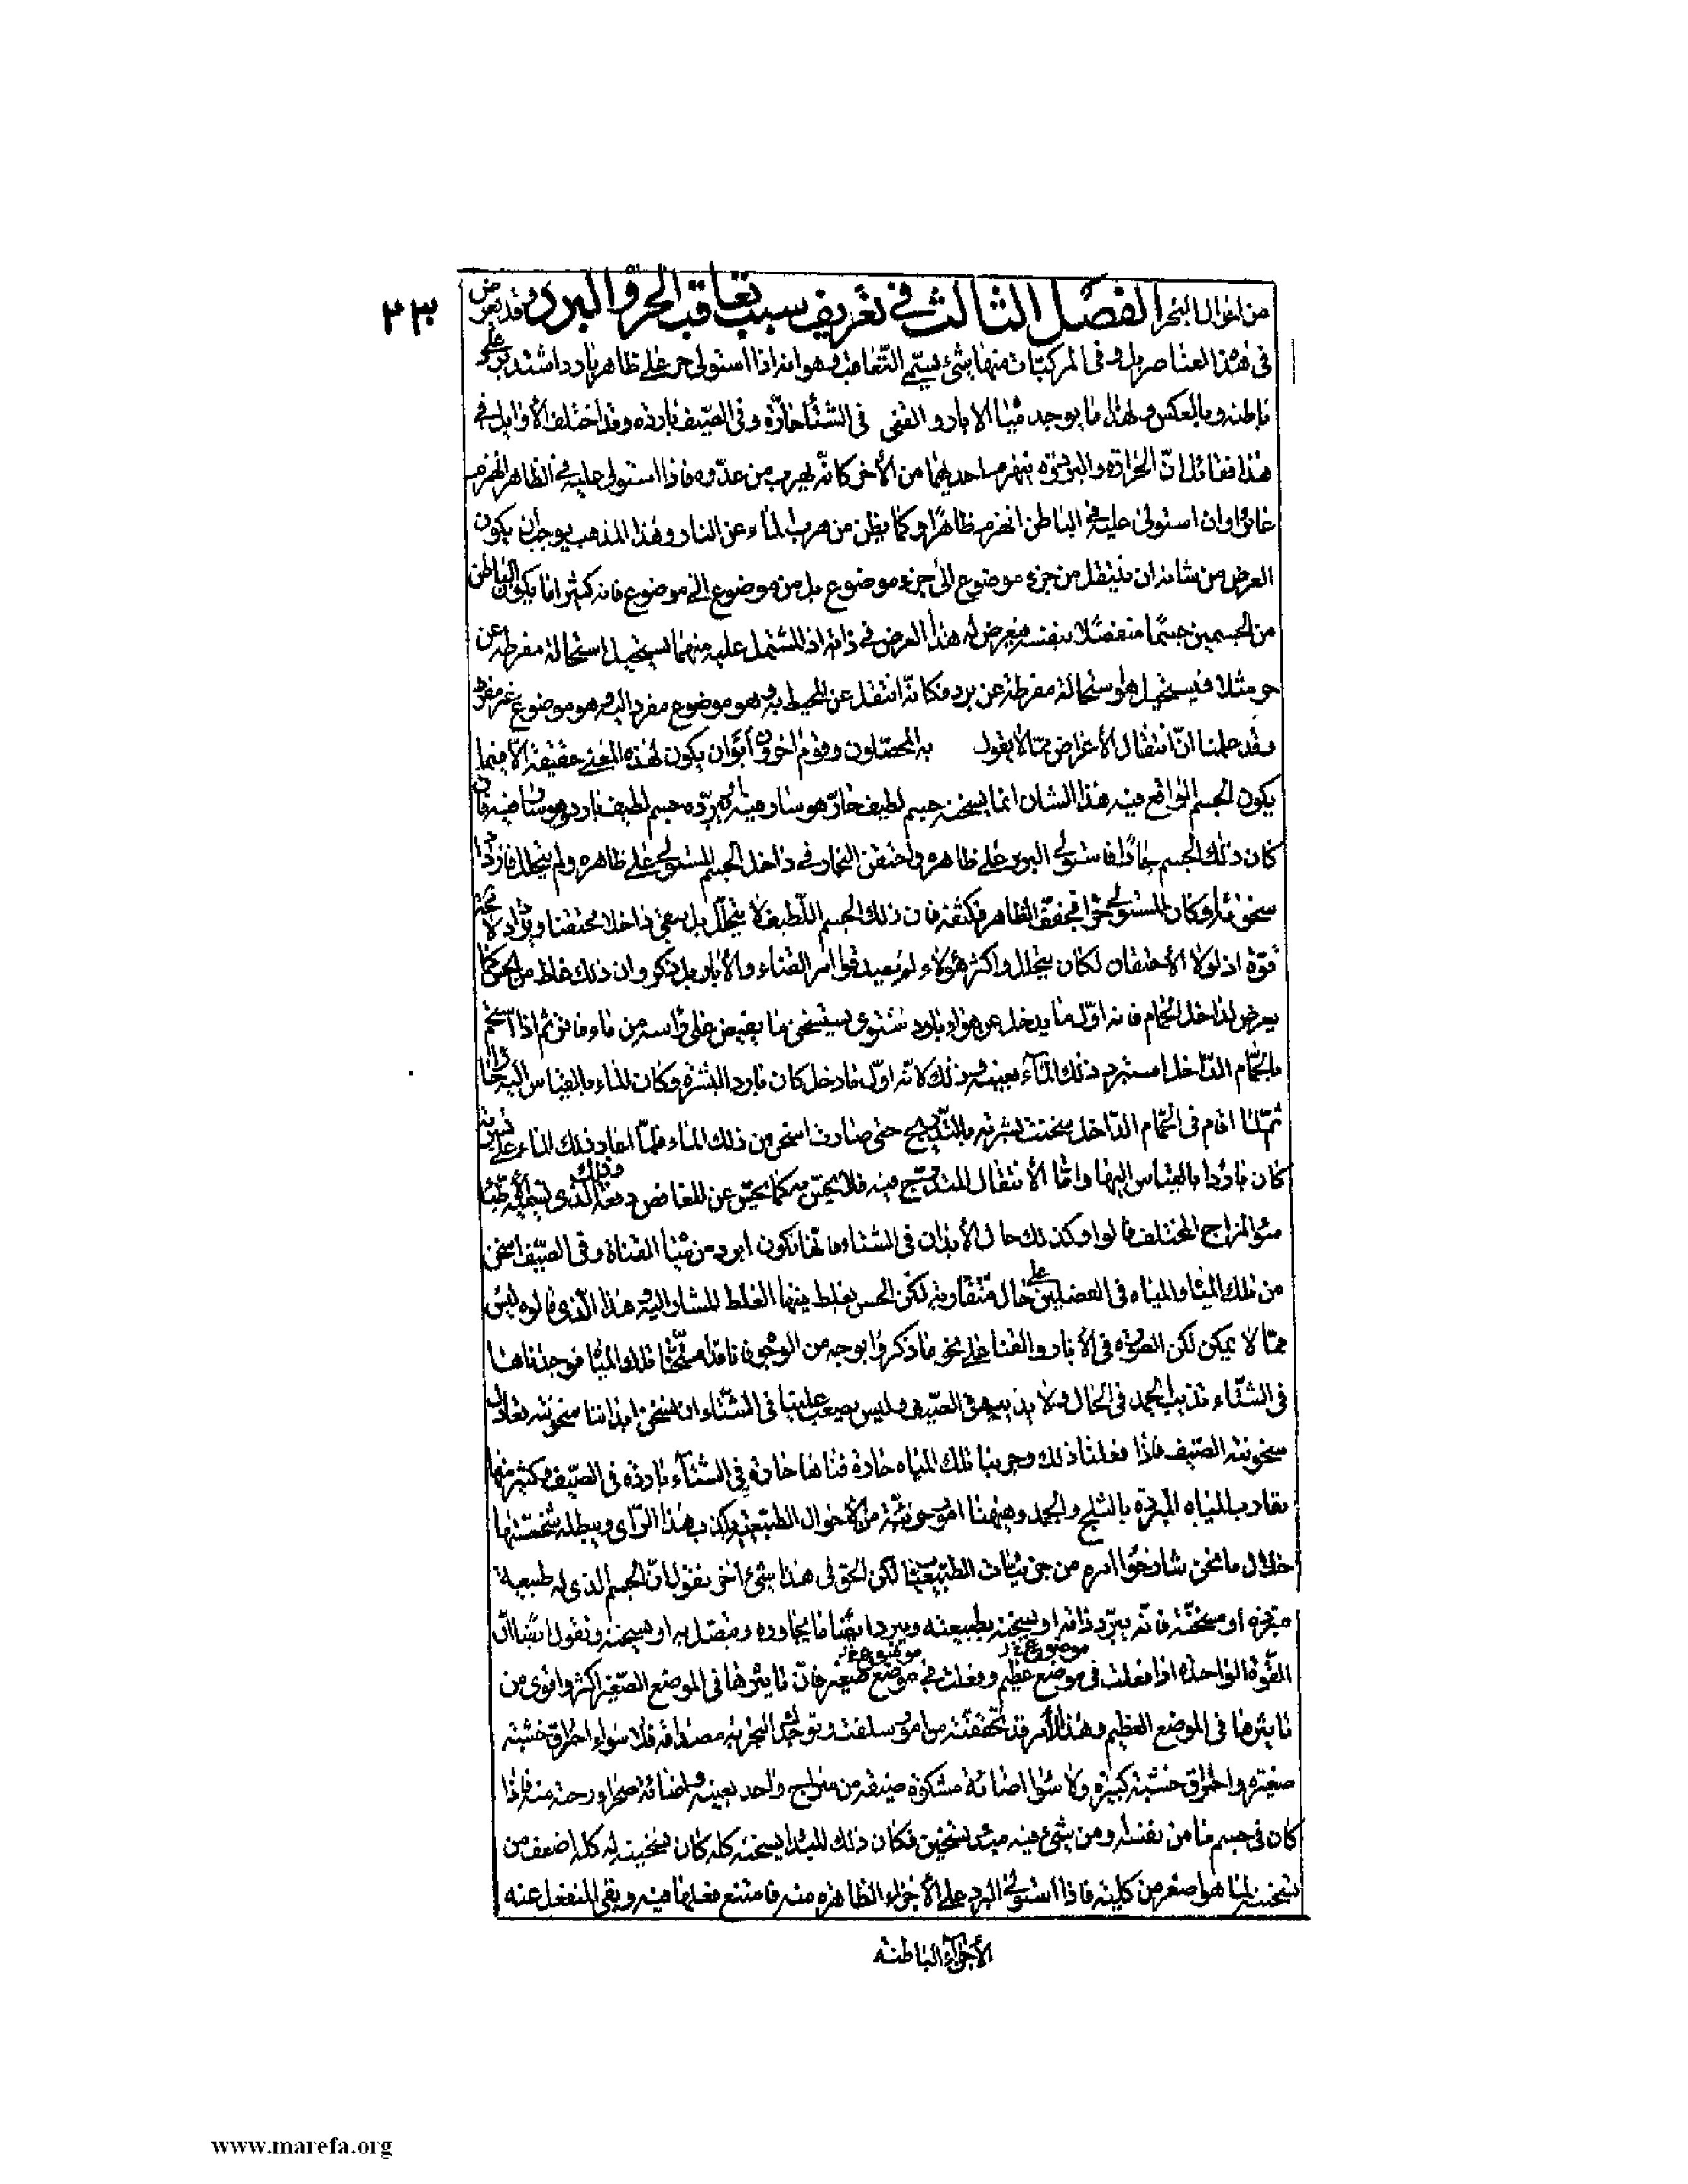 من احوال البحر الفصل الثالث في تعريف سبب تعاقب الحر و البرد قد يعرض
٢٣
في هذا العناصر بل و في المركبات منها شئ يسمى التعاقب و هو انه اذا استولى حر على ظاهر بارد اشتد برد على
باطنه و بالعكس و لهذا ما يوجد مياه الابار و القنى في الشتاء حارة و في الصيف باردة و قد اختلف الاوايل في
هذا فقائل ان الحرارة و البرودة ينهزم احديهما من الاخر كانه يهرب من عدوه فاذا استولى عليه في الظاهر انهزم
غائرا و ان استولى عليه في الباطن انهزم ظاهرا و كما يظن من هرب الماء عن النار و هذا المذهب يوجب ان يكون
العرض من شانه ان ينتقل من جزء موضوع الى جزء موضوع بل من موضوع الى موضوع فانه كثيرا ما يكون الباطن
من الجسمين جسما منفصلا بنفسه فيعرض له هذا العرض في ذاته اذ المشتمل عليه منهما يستحيل استحالة مفرطة عن
حر مثلا فيستحيل هو استحالة مفرطة عن برد فكانه انتقل عن المحيط به و هو موضوع مفرد اليه و هو موضوع غير مفرد
و قد علمنا ان انتقال الاعراض مما لا يقول به المحصلون و قوم اخرون ابوا ان يكون لهذه المعنى حقيقة الا فيما
يكون الجسم الواقع فيه هذا الشان انما يسخنه جسم لطيف حار هو سار فيه او يبرده جسم لطيف بارد هو سار فيه فان
كان ذلك الجسم حارا فاستولى البرد على ظاهره و احتقن البخار في داخل الجسم المستولى على ظاهره و لم يتحلل فازداد
سخونة و كان المستولى حرا فجفف الظاهر فكثفه فان ذلك الجسم اللطيف لا يتحلل بل يبقى داخلا محتقنا و يزداد لا محة
قوة اذ لولا الاحتقان لكان يتحلل و اكثر هؤلاء لم يعيدوا امر القناء و الابار بل ذكروا ان ذلك غلط من الحس كما
يعرض لداخل الحمام فانه اول ما يدخل عن هواء بارد شتوى يستسخن ما يفيض على راسه من ماء فاتر ثم اذا استحم
بالحمام الداخل استبرد ذلك الماء بعينه و ذلك لانه اول ما دخل كان بارد البشرة و كان الماء بالقياس اليه حارا
ثم لما اقام في الحمام الداخل سخنت بشرته بالتدريج حتى صارت اسخن من ذلك الماء فلما اعاد ذلك الماء على بشرته
كان باردا بالقياس اليها و اما الانتقال المتدرج فيه فلا يحس به كما يحس عن المغافص دفعة و ذلك الذي يسميه الاطباء
سوء المزاج المختلف قالوا و كذلك حال الابدان في الشتاء فانها تكون ابرد من مياه القناة و في الصيف اسخن
من تلك المياه و المياه في الفصلين على حال متقاربة لكن الحس يغلط فيهما الغلط المشار اليه و هذا الذي قالوه ليس
مما لا يمكن لكن الصورة في الابار و القناة على نحو ما ذكروا بوجه من الوجوه فانا قد امتحنا تلك المياه فوجدناها
في الشتاء تذيب الجمد في الحال و لا يذيبه في الصيف و ليس يصعب علينا في الشتاء ان نسخن ابداننا سخونة تعادل
سخونة الصيف فاذا فعلنا ذلك و جربنا تلك المياه حارة فناها حارة في الشتاء باردة في الصيف و كثير منها
يقارب المياه المبردة بالثلج و الجمد و هيهنا امور جزئية من الاحوال الطبيعية يكذب هذا الراى و يبطله سنحسنها
خلال ما نحن شارحوا امره من جزئيات الطبيعيات لكن الحق في هذا شئ اخر نقول ان الجسم الذي له طبيعة
مبردة او مسخنة فانه يبرد ذاته او يسخنه بطبيعته و يبرد ايضا ما يجاوره و يتصل به او يسخنه و نقول ايضا ان
موضوع خ ر موضوع خ ر
القوة الواحدة اذا فعلت في موضع عظيم و فعلت في موضع صغير فان تاثيرها في الموضع الصغير اكثر و اقوى من
تاثيرها في الموضع العظيم و هذا الامر قد تحققته من امور سلفت و توجد التجربة مصداقه فلا سواء احراق خشبة
صغيرة و احراق خشبة كبيرة و لا سواء اضائة مشكوة ضيقة من سراج واحد بعينه و اضائة صحراء رحبة منه فاذا
كان في جسم ما من نفسه و من شئ فيه مبدا تسخين فكان ذلك المبدا يسخنه كله كان تسخينه له كله اضعف من
تسخينه لما هو اصغر من كليته فاذا استولى البرد على الاجزاء الظاهرة منه فامتنع فعلها فيه و بقى المنفعل عنه
الاجزاء الباطنة
www.marefa.org